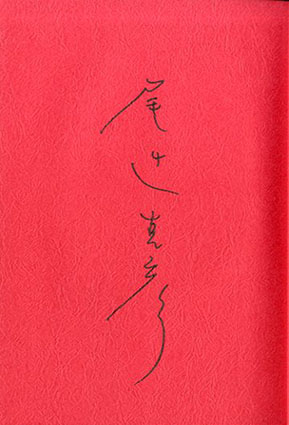 尾辻克彦